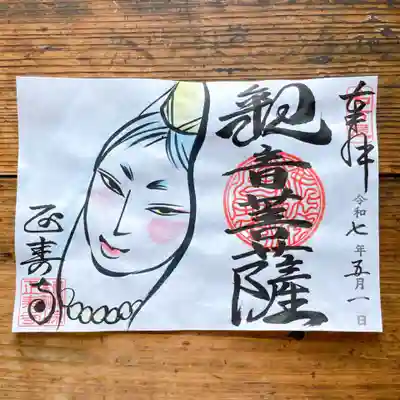 奉拝
令和七年五月一日
観音菩薩
正寿寺